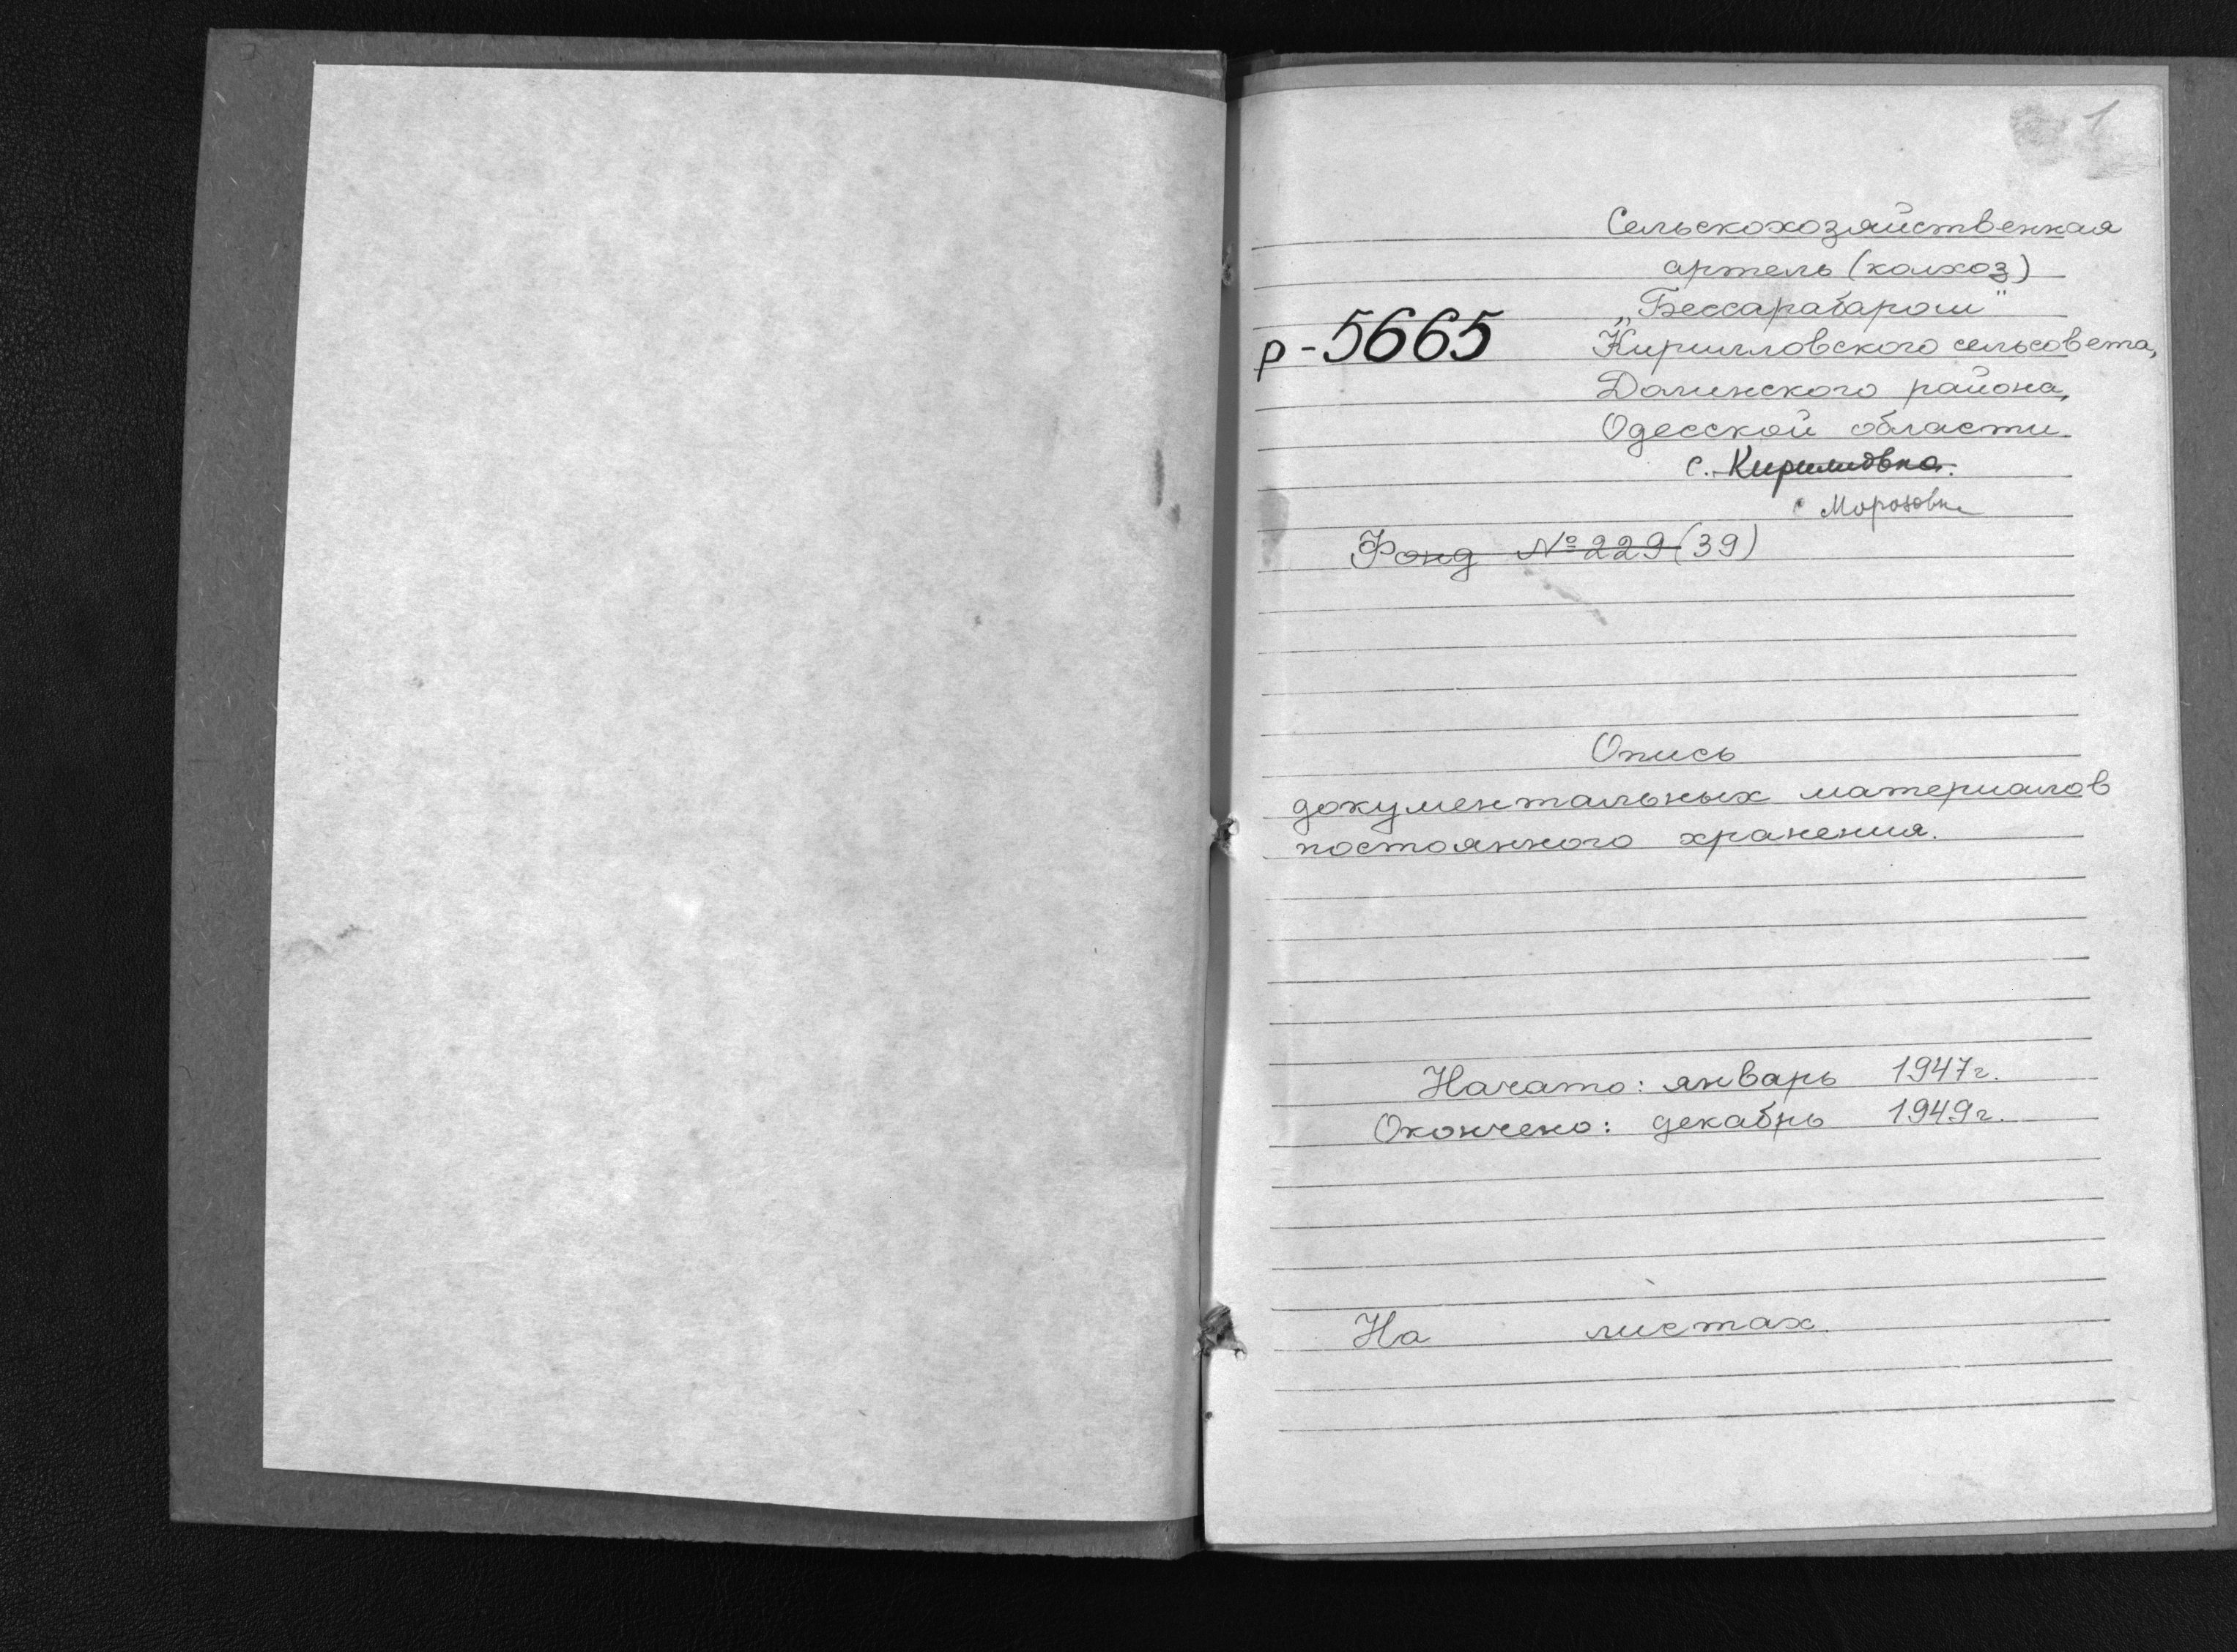 1
Сельскохозяйственная
артель (колхоз)
„Бессарабаром"
р-5665
Кирилловского сельсовета,
Долинского района,
Одесской области.
с. Кирилловка.
с Морозовка
Фонд №229 (39)
Опись
документальных материалов
постоянного хранения.
Начато: январь 1947г.
Окончено: декабрь 1949г.
На листах.